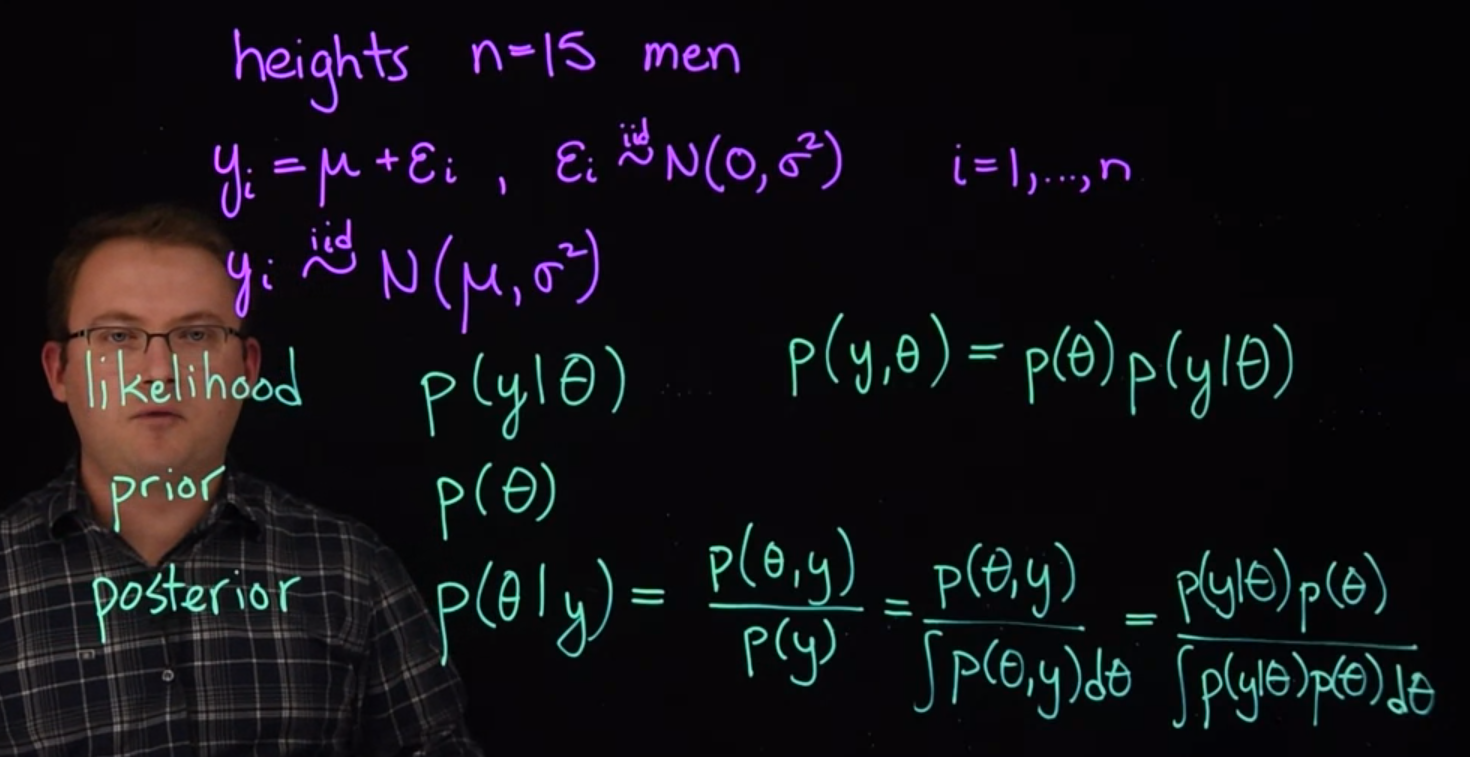 heights n=15 men
yᵢ = μ + εᵢ , εᵢ iid~ N(0, σ²) i=1,...,n
yᵢ iid~ N(μ, σ²)
likelihood p(y|θ) p(y,θ) = p(θ) p(y|θ)
prior p(θ)
posterior p(θ|y) = p(θ,y) / p(y) = p(θ,y) / ∫p(θ,y)dθ = p(y|θ)p(θ) / ∫p(y|θ)p(θ)dθ